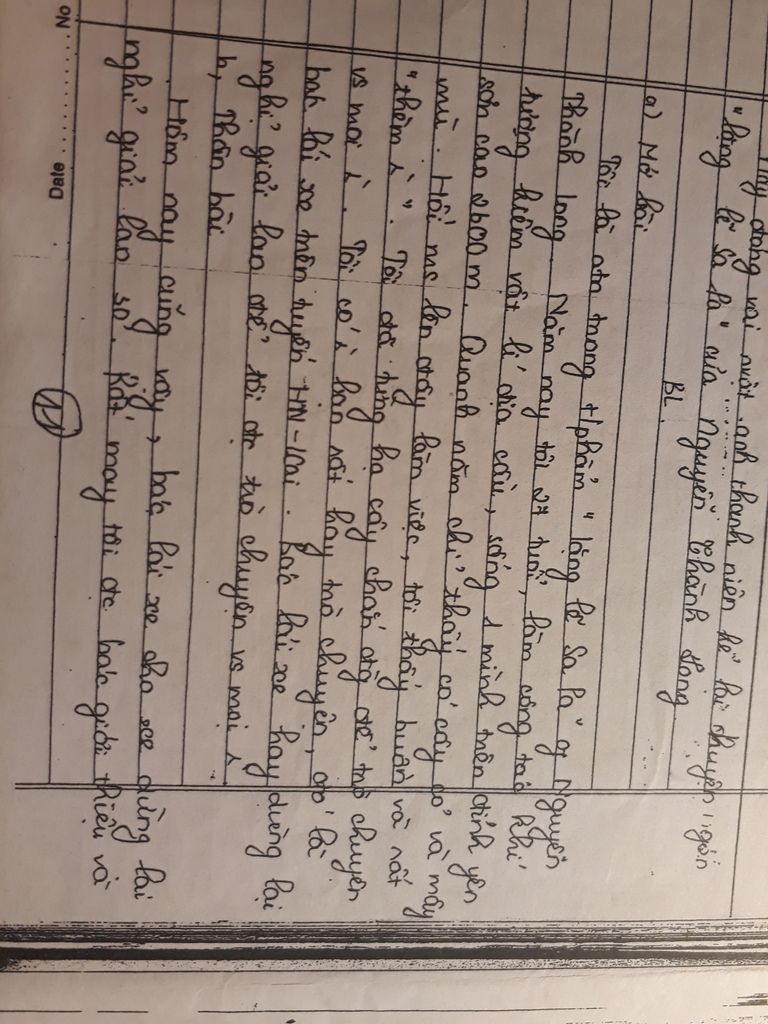 Hãy đóng vai nhật anh thanh niên kể lại chuyện
"lặng lẽ Sa Pa" của Nguyễn Thành Long
BL
a) Mở bài
Tôi là atn trong t/phẩm "lặng lẽ Sa Pa" of Nguyễn
Thành Long. Năm nay tôi 27 tuổi, làm công tác khí
tượng kiêm vật lí địa cầu, sống 1 mình trên đỉnh yên
sơn cao 2600m. Quanh năm chỉ thấy có cây cỏ và mây
mù. Hồi ms lên đây làm việc, tôi thấy buồn và rất
"thèm ì". Tôi đã từng hạ cây chắn đg để trò chuyện
vs mọi ì. Tôi có ì bạn rất hay trò chuyện, đó là
bác lái xe trên tuyến HN-lcai. Bác lái xe hay dừng lại
nghỉ giải lao để tôi đc trò chuyện vs mọi ì
b, Thân bài
Hôm nay cũng vậy, bác lái xe cho xe dừng lại
nghỉ giải lao số. Rất may tôi đc bác giới thiệu và
No
Date